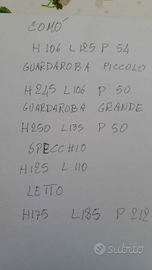 COMÓ
H 106 L 125 P 54
GUARDAROBA PICCOLO
H 245 L 106 P 50
GUARDAROBA GRANDE
H 250 L 135 P 50
SPECCHIO
H 125 L 110
LETTO
H 175 L 185 P 212
subito